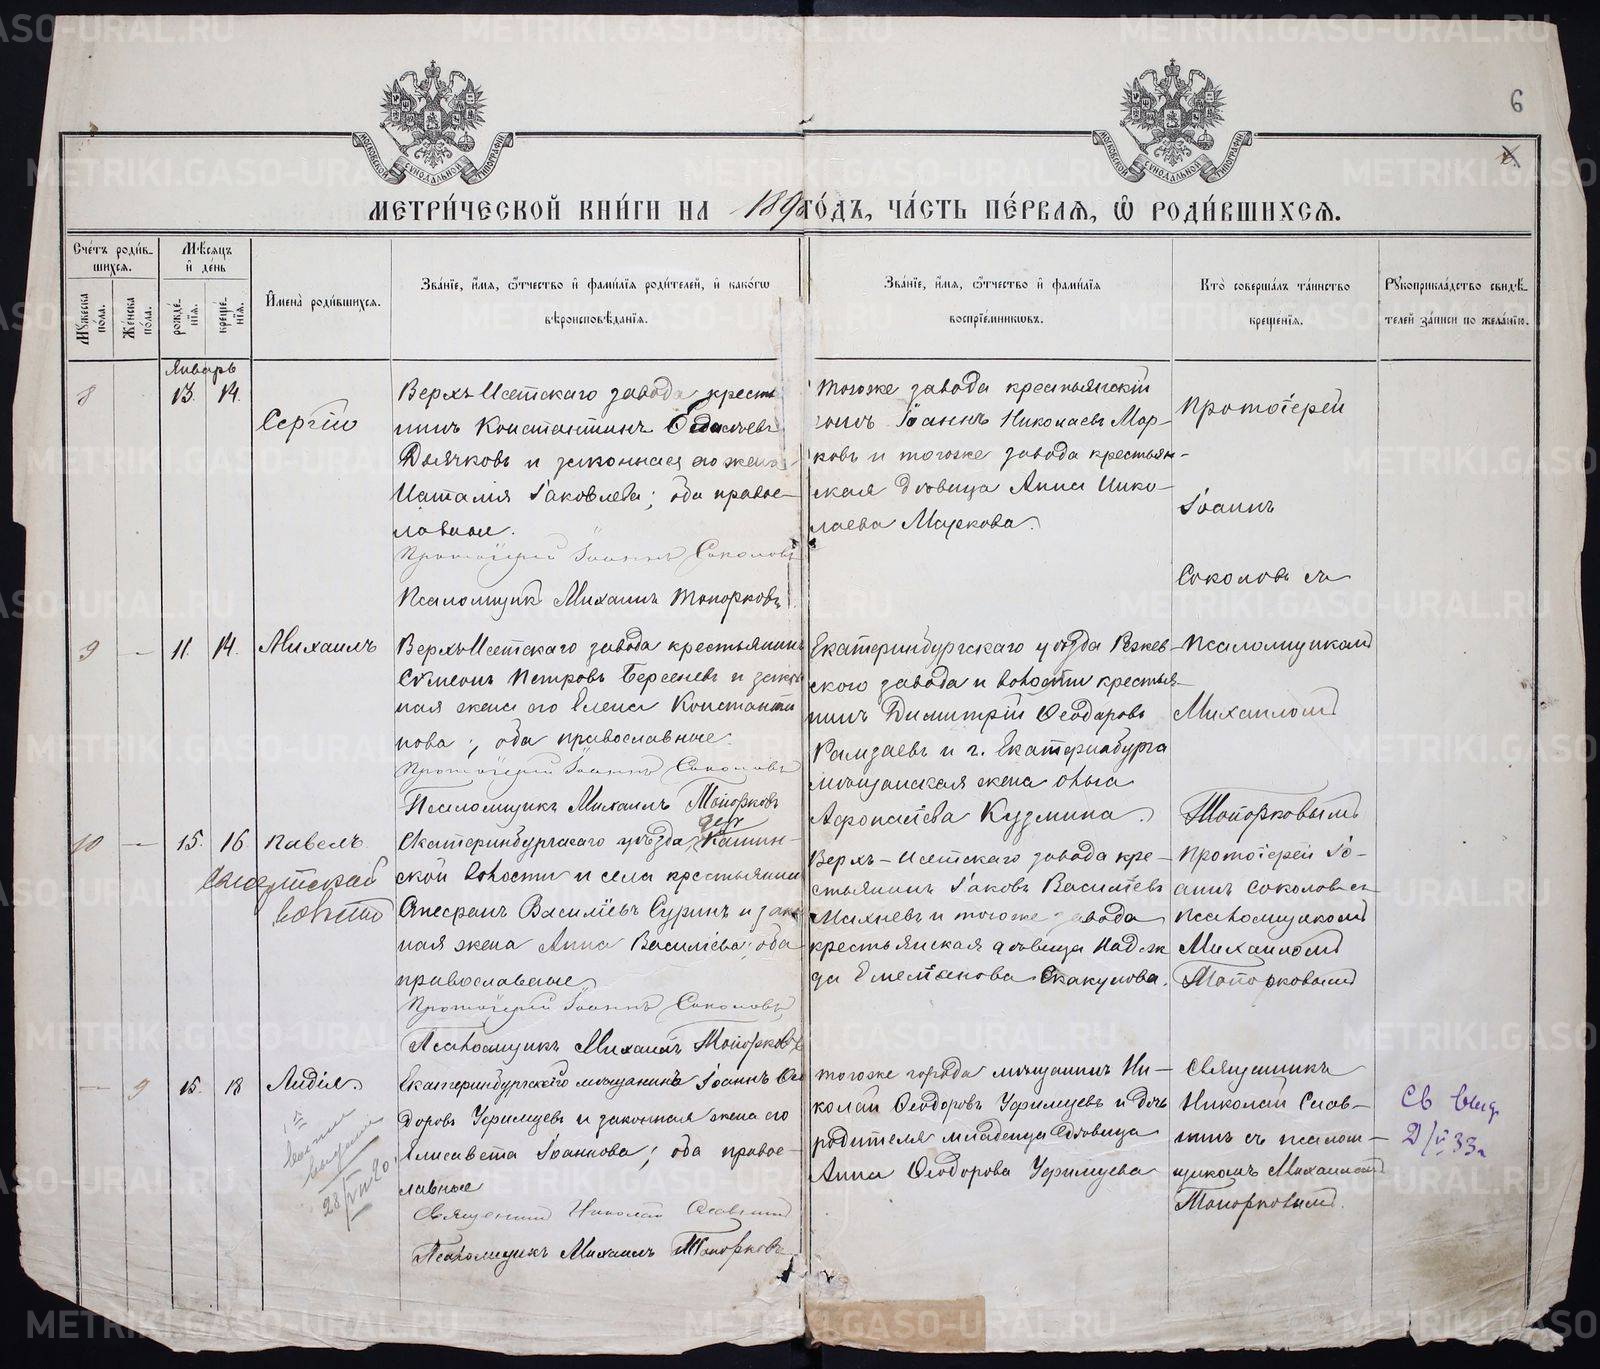 6
МОСКОВСКОЙ СѴНОДАЛЬНОЙ ТИПОГРАФІИ
МОСКОВСКОЙ СѴНОДАЛЬНОЙ ТИПОГРАФІИ
МЕТРИ́ЧЕСКОЙ КНИ́ГИ НА 189 ГО́ДЪ, ЧА́СТЬ ПЕ́РВАЯ, Ѡ҆ РОДИ́ВШИХСЯ.
Сче́тъ роди́в-
шихся.
Мѣ́сяцъ
и҆ де́нь
Мꙋ́жеска
по́ла.
Же́нска
по́ла.
рожде́-
нїя.
креще́-
нїя.
И҆мена̀ роди́вшихся.
Зва́нїе, и҆́мя, ѻ҆́тчество и҆ фами́лїя роди́телей, и҆ како́гѡ
вѣроисповѣ́данїя.
Зва́нїе, и҆́мя, ѻ҆́тчество и҆ фами́лїя
воспрїе́мникѡвъ.
Кто̀ соверша́лъ та́инство
креще́нїя.
Рꙋкоприкла́дство свидѣ́-
телей за́писи по жела́нїю.
Январь
8 13. 14.
Сергій
Верхъ Исетскаго завода кресть
нинъ Константинъ
Дьячковъ и законная его жена
Наталія Іаковлева; оба право-
славные.
Протоіерей Іоаннъ Соколовъ
Псаломщикъ Михаилъ Топорковъ.
Тогоже завода крестьянскій
сынъ Іоаннъ Николаевъ Мар-
ковъ и тогоже завода крестьян-
ская дѣвица Анна Нико-
лаева Маркова.
Протоіерей
Іоаннъ
Соколовъ съ
9 - 11. 14. Михаилъ
Верхъ Исетскаго завода крестьянинъ
Сѵмеонъ Петровъ Берсеневъ и закон
ная жена его Елена Константи
нова; оба православные.
Протоіерей Іоаннъ Соколовъ
Псаломщикъ Михаилъ Топорковъ
Екатеринбургскаго уѣзда Режев-
скаго завода и волости крестья-
нинъ Димитрій Ѳеодоровъ
и г. Екатеринбурга
мѣщанская жена Ольга
Кузмина.
Псаломщикомъ
Михаиломъ
Топорковымъ
10 - 15. 16. Павелъ.
Екатеринбургскаго уѣзда
ской волости и села крестьянинъ
Василіевъ Суринъ и закон
ная жена Анна Василіева; оба
православные
Протоіерей Іоаннъ Соколовъ
Псаломщикъ Михаилъ Топорковъ
Верхъ-Исетскаго завода кре-
стьянинъ Іаковъ Василіевъ
Махневъ и тогоже завода
крестьянская дѣвица Надеж
да Емельянова Скакунова.
Протоіерей Іо-
аннъ Соколовъ съ
Псаломщикомъ
Михаиломъ
Топорковымъ
- 9 15. 18 Лидія
Екатеринбургскій мѣщанинъ Іоаннъ Ѳео
доровъ Уфимцевъ и законная жена его
Елисавета Іоаннова; оба право-
славные
Священникъ Николай
Псаломщикъ Михаилъ Топорковъ
Тогоже города мѣщанинъ Ни-
колай Ѳеодоровъ Уфимцевъ и дочь
родителя младенца дѣвица
Анна Ѳеодорова Уфимцева
Священникъ
Николай Слав-
нинъ съ псалом-
щикомъ Михаиломъ
Топорковымъ.
28/VIII 20.
Св выд.
2/VI 33г